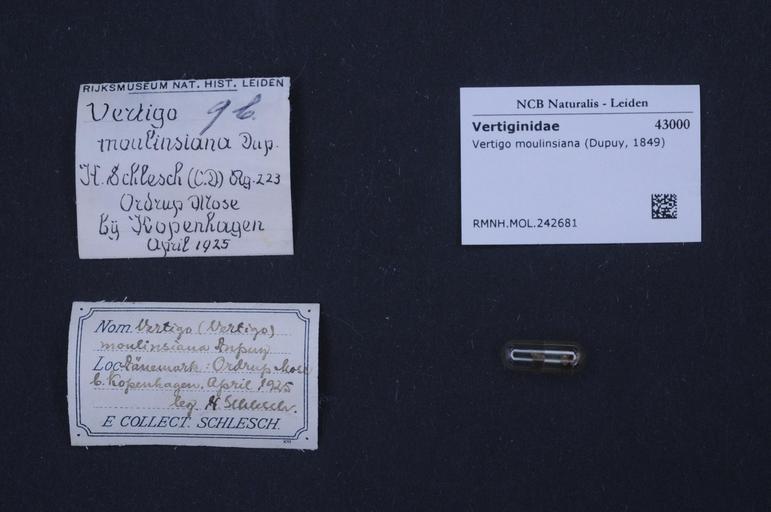 RIJKSMUSEUM NAT. HIST. LEIDEN
Vertigo gb.
moulinsiana Dup.
H. Schlesch (C.D) Ag. 223
Ordrup Mose
bÿ Kopenhagen
April 1925
NCB Naturalis - Leiden
Vertiginidae 43000
Vertigo moulinsiana (Dupuy, 1849)
RMNH.MOL.242681
Nom. Vertigo (Vertigo)
moulinsiana Dupuy
Loc. Dänemark: Ordrup Mose
b. Kopenhagen, April 1925
leg. H. Schlesch.
E COLLECT. SCHLESCH.